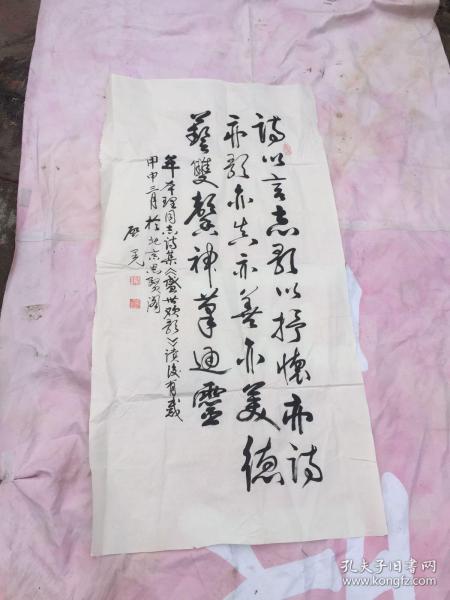 詩以言志歌以抒懷亦詩
亦歌亦真亦善亦美德
藝雙馨神筆通靈
年本理同志詩集《盛世欢歌》读後有感
甲申三月於北京思賢阁
孔夫子旧书网
www.kongfz.com